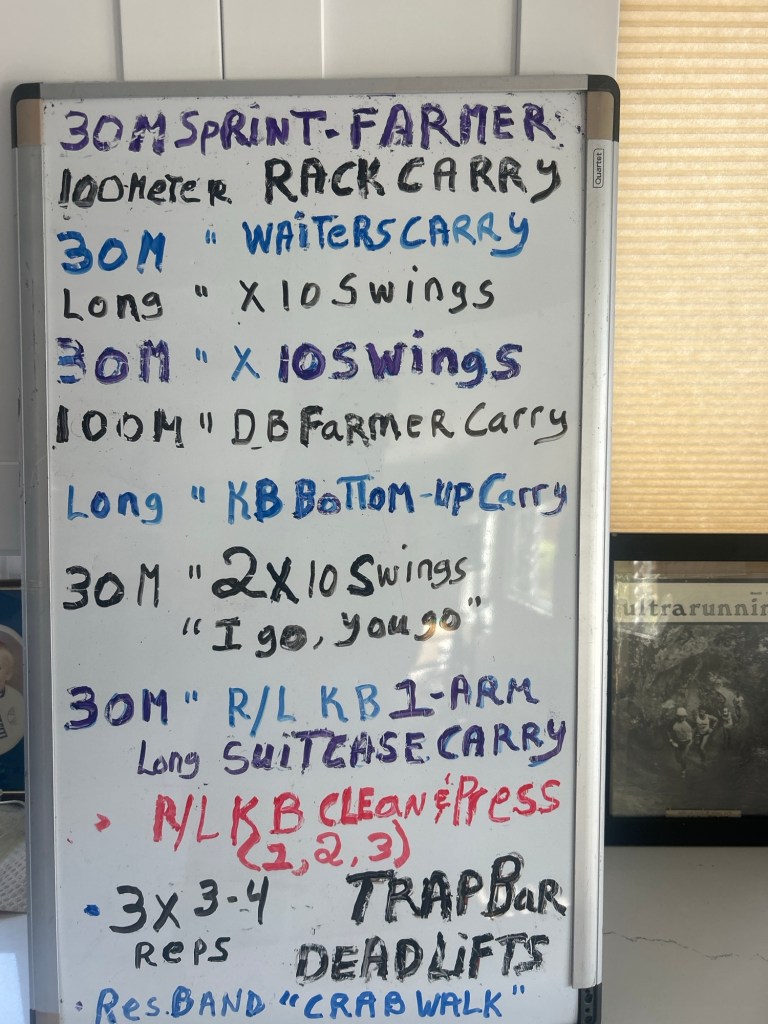 30M SPRINT - FARMER
100 METER RACK CARRY
30M " WAITERS CARRY
Long " X 10 Swings
30M " X 10 Swings
100M " DB FARMER Carry
Long " KB BOTTOM-UP Carry
30M " 2X10 Swings
"I go, you go"
30M " R/L KB 1-ARM
Long SUITCASE CARRY
R/L KB CLEAN & Press
(1,2,3)
• 3X 3-4 TRAP BAR
REPS DEADLIFTS
• Res. BAND "CRAB WALK"
Quartet
ultrarunnin